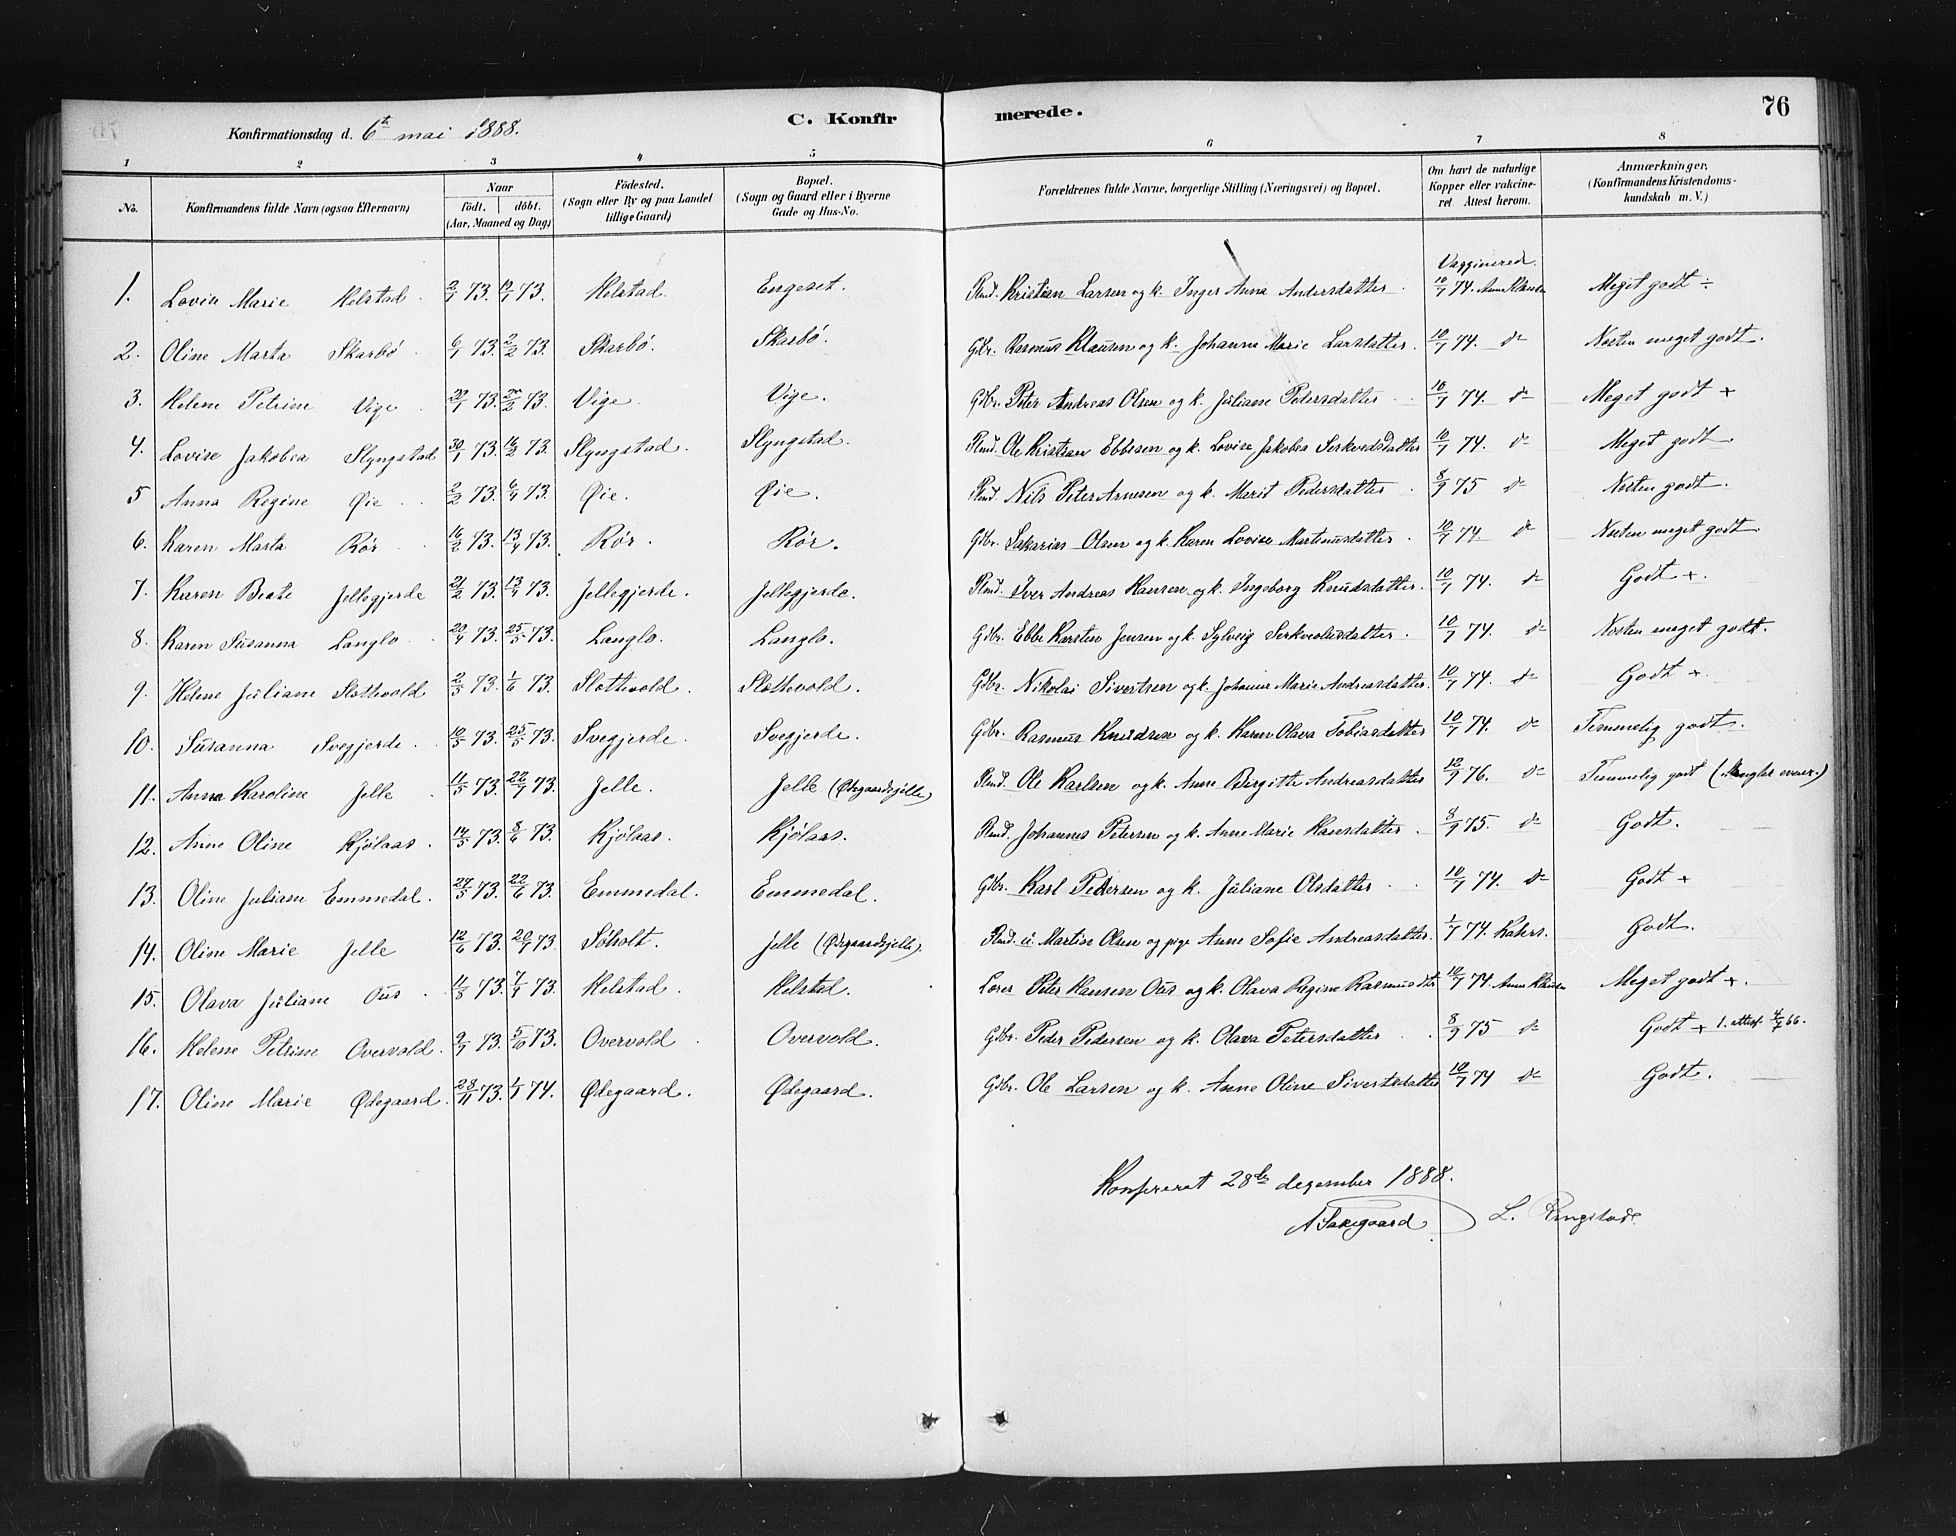 76
Konfirmationsdag d. 6te mai 1888.
C. Konfirmerede.
1 2 3 4 5 6 7 8
No. Konfirmandens fulde Navn (ogsaa Efternavn) Naar født. døbt. (Aar, Maaned og Dag) Fødested. (Sogn eller By og paa Landet tillige Gaard) Bopæl. (Sogn og Gaard eller i Byerne Gade og Hus-No. Forældrenes fulde Navne, borgerlige Stilling (Næringsvei) og Bopæl. Om havt de naturlige Kopper eller vakcineret Attest herom. Anmærkninger. (Konfirmandens Kristendomskundskab m. V.)
Vagginered.
1. Lovise Marie Helstad. 2/1 73. 19/1 73. Helstad. Engeset. Plmd. Kristian Larsen og k. Inger Anna Andersdatter. 10/7 74. Anna Klausen Meget godt ÷
2. Oline Marta Skarbø 6/1 73. 2/2 73. Skarbø. Skarbø. Gbr. Rasmus Klausen og k. Johanne Marie Larsdatter. 10/7 74. do Nesten meget godt.
3. Helene Petrine Vige 20/1 73. /2 73. Vige. Vige. Gbr. Peter Andreas Olsen og k. Juliane Pedersdatter 10/7 74. do Meget godt +
4. Lovise Jakobea Slyngstad 30/1 73. 16/2 73. Slyngstad. Slyngstad. Plmd. Ole Kristian Ebbesen og k. Lovise Jakobea Serkvedsdatter 10/7 74. do Meget godt.
5 Anna Regine Øie 2/2 73. 6/4 73. Øie. Øie. Plmd. Nils Peter Arnesen og k. Marit Pedersdatter 8/9 75 do Nesten godt.
6. Karen Marta Rør 16/2 73. 13/4 73. Rør. Rør. Gbr. Sakarias Olsen og k. Karen Lovise Martinusdatter. 10/7 74. do Nesten meget godt
7. Karen Beate Jellegjerde 21/2 73. 13/4 73. Jellegjerde. Jellegjerde. Plmd. Iver Andreas Hansen og k. Ingeborg Knudsdatter. 10/7 74. do Godt +.
8. Karen Susanna Langlo 20/4 73. 25/5 73. Langlo. Langlo. Gbr. Ebbe Karsten Jensen og k. Sylveig Serkvedsdatter. 10/7 74. do Nesten meget godt.
9. Helene Juliane Slottvold 2/5 73. 1/6 73. Slottvold. Slottvold. Gbr. Nikolai Sivertsen og k. Johanne Marie Andreasdatter. 10/7 74. do Godt +.
10. Susanna Svegjerde. 10/5 73. 25/5 73. Svegjerde. Svegjerde. Gbr. Rasmus Knudsen og k. Karen Olava Tobiasdatter 10/7 74. do Temmelig godt.
11. Anna Karoline Jelle 11/5 73. 22/7 73. Jelle. Jelle (Ødegaardsjelle) Plmd. Ole Karlsen og k. Anne Birgitte Andreasdatter. 12/9 76. do Temmelig godt (Mangler evner.)
12. Anne Oline Kjølaas. 14/5 73. 8/6 73. Kjølaas. Kjølaas. Plmd. Johannes Petersen og k. Anne Marie Hansdatter. 8/9 75. do Godt.
13. Oline Juliane Emmedal. 27/5 73. 22/6 73. Emmedal. Emmedal. Gbr. Karl Pedersen og k. Juliane Olsdatter 10/7 74. do Godt +
14. Oline Marie Jelle 12/6 73. 20/7 73. Søholt. Jelle (Ødegaardsjelle). Plmd. u. Martin Olsen og pige Anne Sofie Andreasdatter. 1/7 74. Kahrs. Godt.
15. Olava Juliane Ous. 11/8 73. 7/9 73. Helstad. Helstad. Lærer Peter Hansen Ous og k. Olava Regine Rasmusdtr 10/7 74. Anna Klausen Meget godt +.
16. Helene Petrine Overvold. 9/9 73. 5/10 73. Overvold Overvold. Gbr. Peder Pedersen og k. Olava Petersdatter 8/9 75 do Godt + 1. attest 66.
17. Oline Marie Ødegaard. 28/11 73. 1/1 74. Ødegaard. Ødegaard. Gbr. Ole Larsen og k. Anne Oline Sivertsdatter 10/7 74 do Godt.
Konfereret 28de dezember 1888.
L. Ringstad.